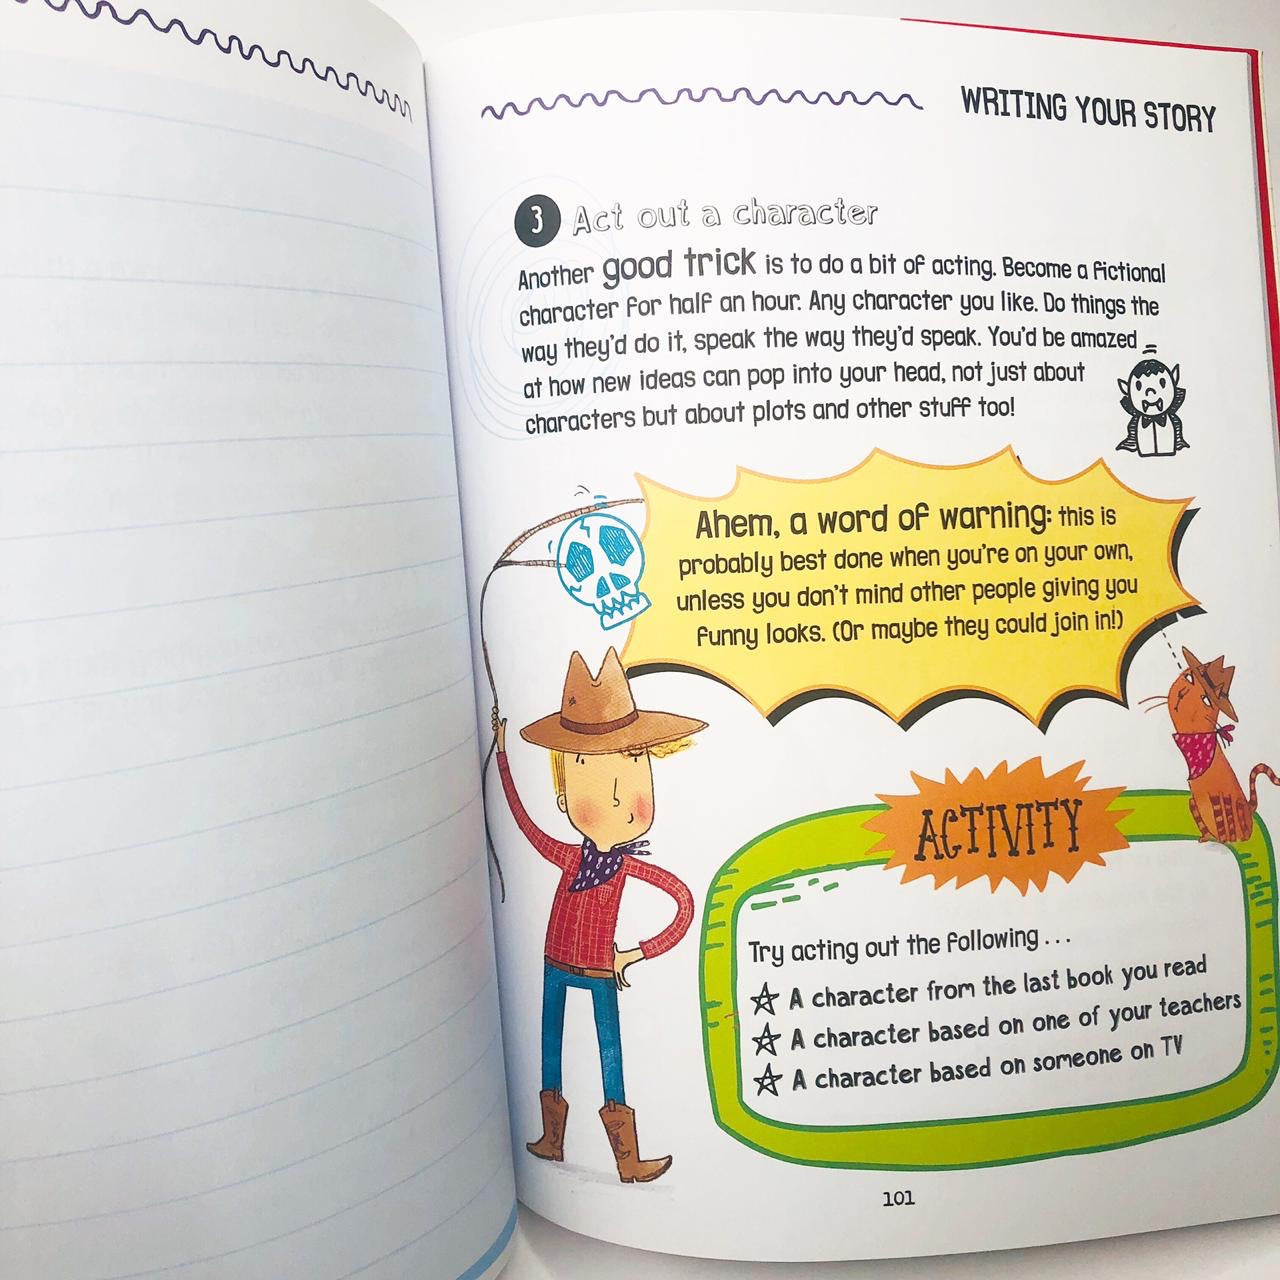 WRITING YOUR STORY
3 Act out a character
Another good trick is to do a bit of acting. Become a fictional
character for half an hour. Any character you like. Do things the
way they'd do it, speak the way they'd speak. You'd be amazed
at how new ideas can pop into your head, not just about
characters but about plots and other stuff too!
Ahem, a word of warning: this is
probably best done when you're on your own,
unless you don't mind other people giving you
funny looks. (Or maybe they could join in!)
ACTIVITY
Try acting out the following...
A character from the last book you read
A character based on one of your teachers
A character based on someone on TV
101